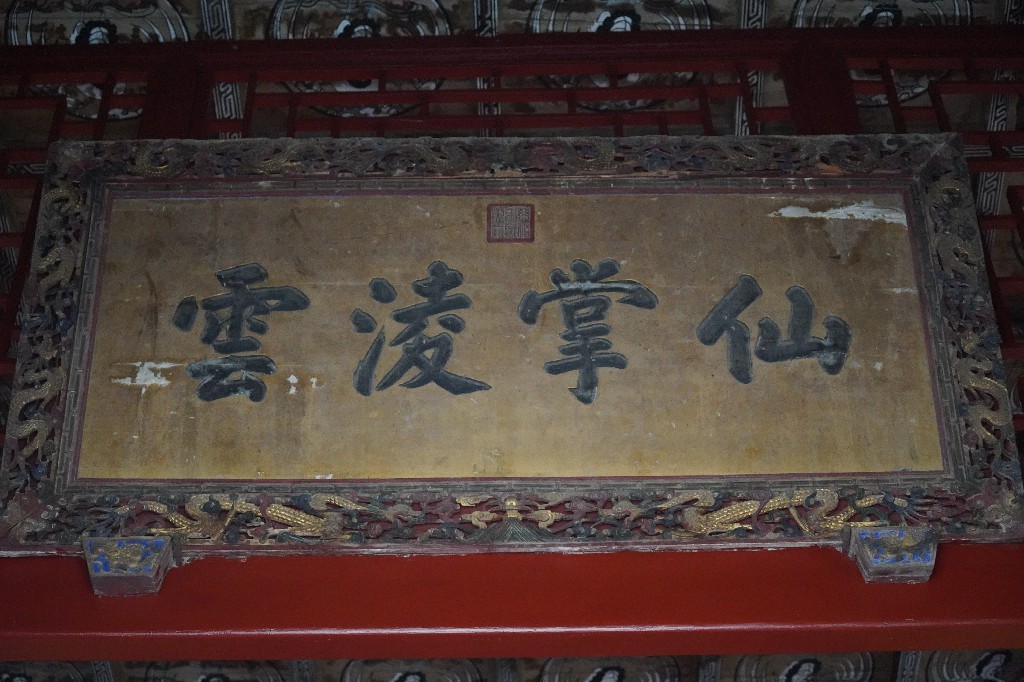 仙掌淩雲